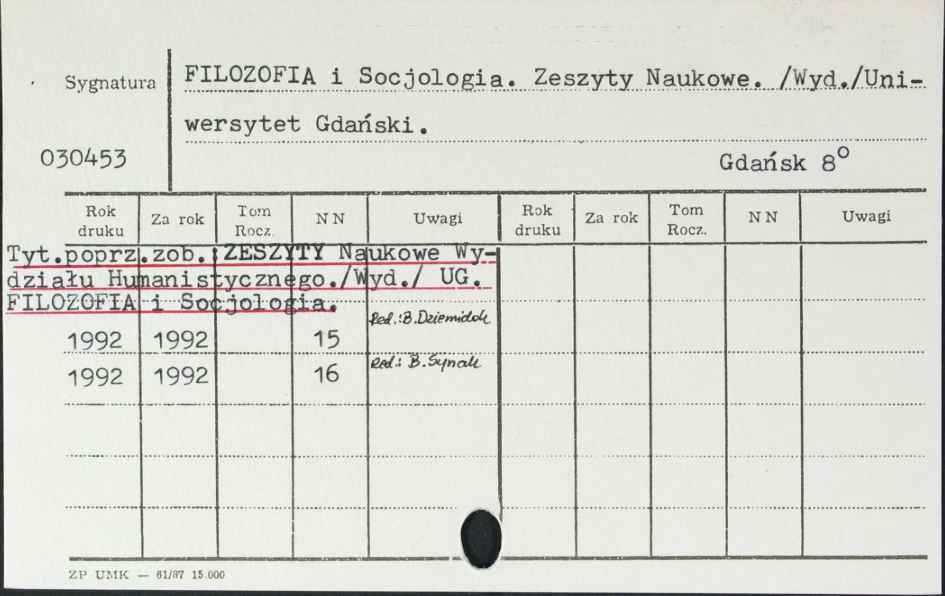 FILOZOFIA i Socjologia. Zeszyty Naukowe. /Wyd./Uni-
Sygnatura
wersytet Gdański.
030453
Gdańsk 8°
Rok druku Za rok Tom Rocz. N N Uwagi Rok druku Za rok Tom Rocz. N N Uwagi
Tyt.poprz.zob.:ZESZYTY Naukowe Wy-
działu Humanistycznego./Wyd./ UG.
FILOZOFIA i Socjologia.
1992 1992 15 Red.:B.Dziemidok
1992 1992 16 Red.: B.Synak
ZP UMK — 61/87 15.000